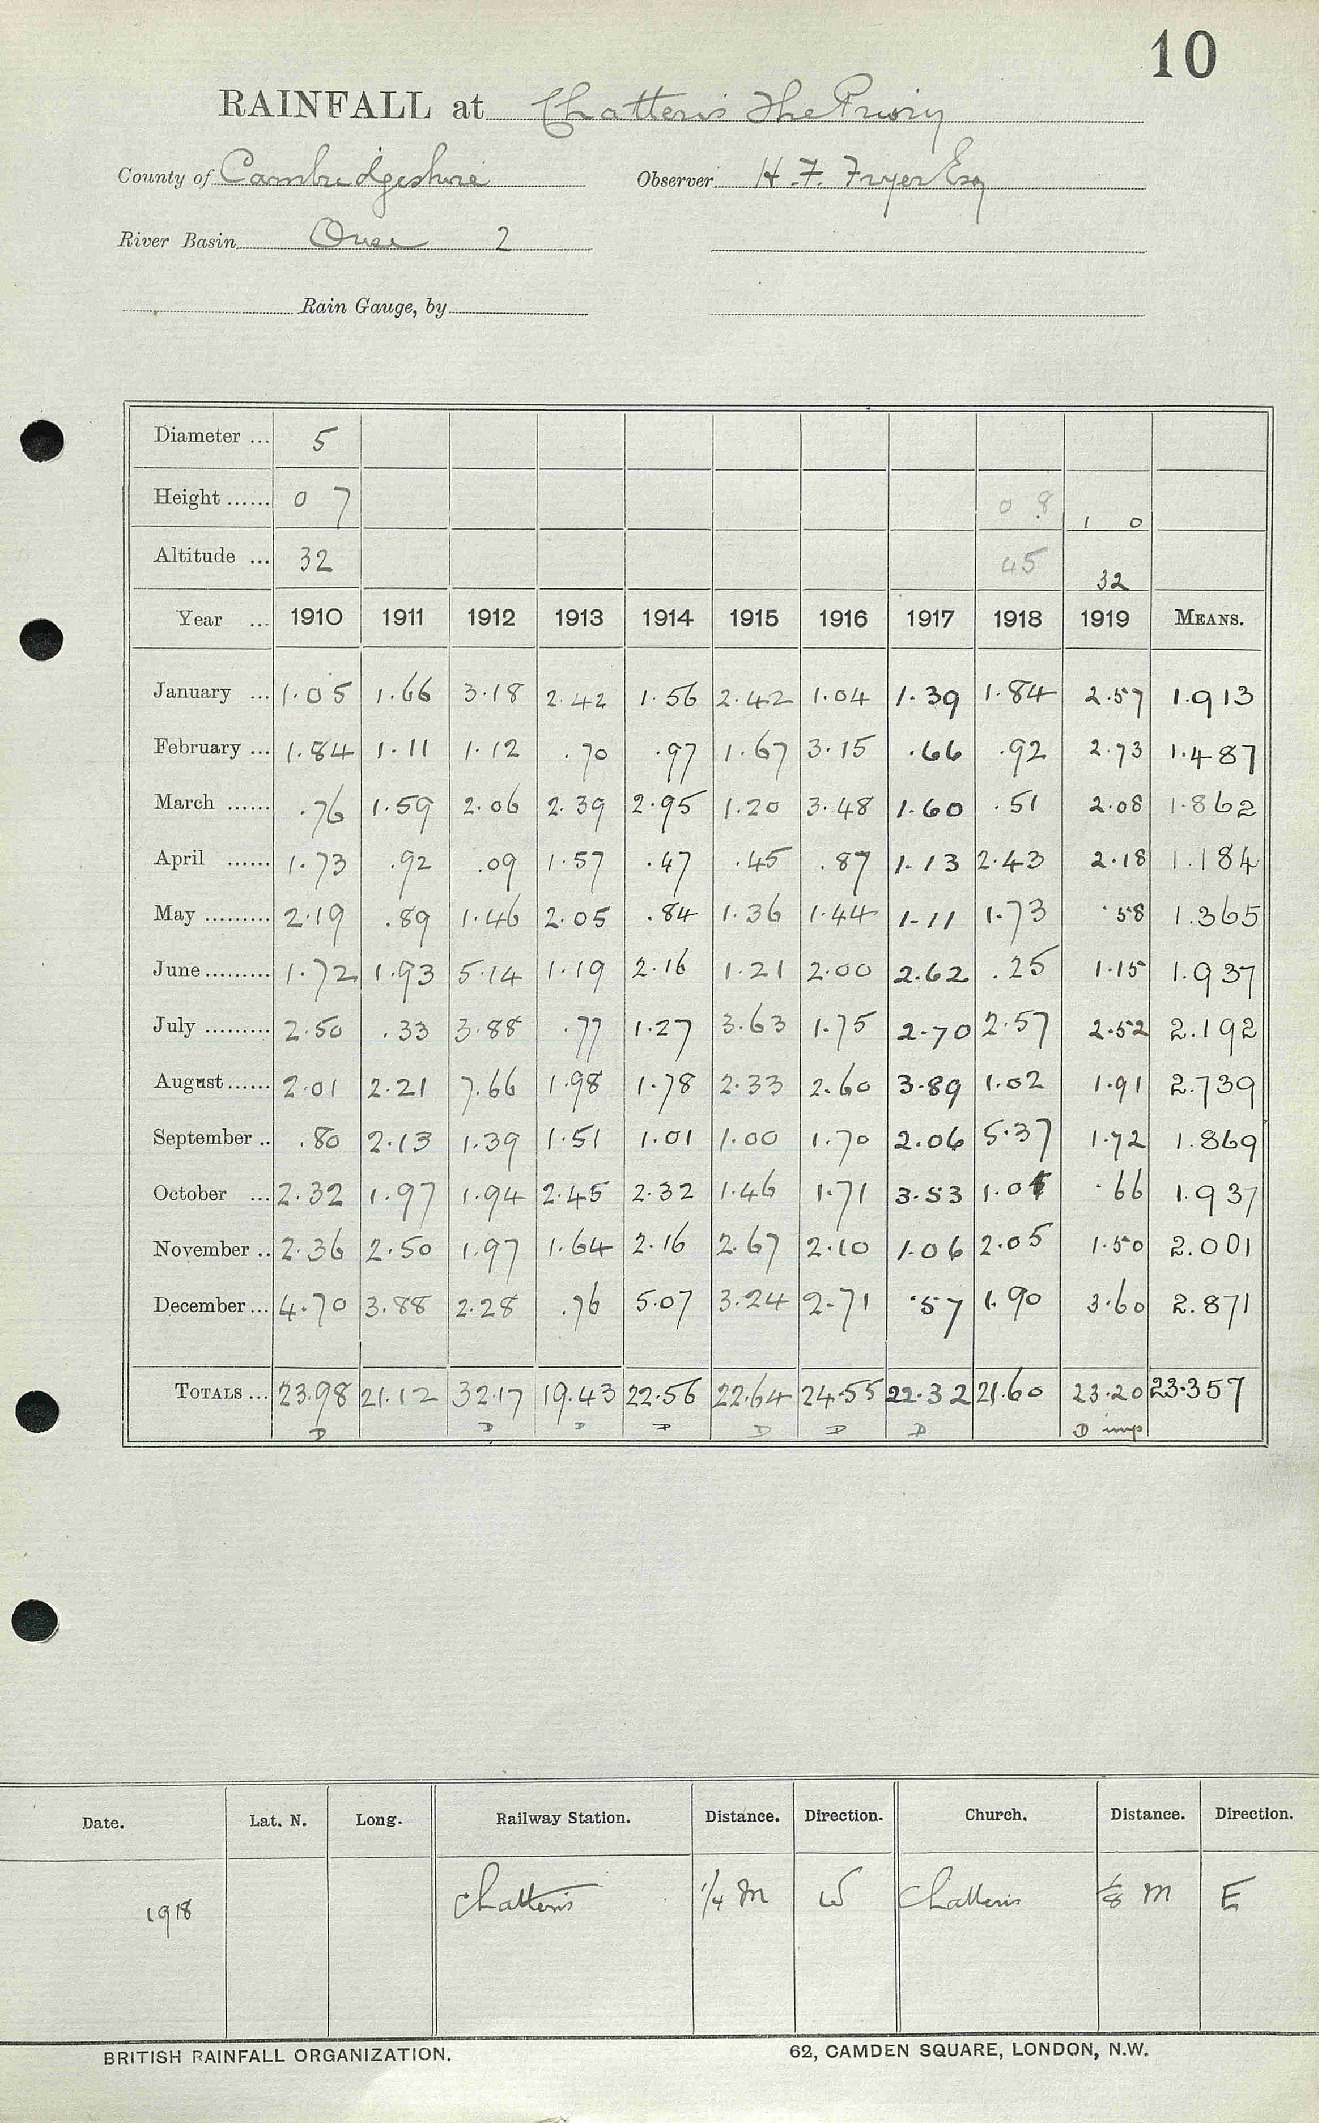 10
RAINFALL at Chatteris The Priory
County of Cambridgeshire Observer H. F. Fryer Esq
River Basin Ouse 2
Rain Gauge, by
Diameter ... 5
Height ...... 0 7 0 8 1 0
Altitude ... 32 45 32
Year ... 1910 1911 1912 1913 1914 1915 1916 1917 1918 1919 MEANS.
January ... 1.05 1.66 3.18 2.42 1.56 2.42 1.04 1.39 1.84 2.57 1.913
February ... 1.84 1.11 1.12 .70 .97 1.67 3.15 .66 .92 2.73 1.487
March ...... .76 1.59 2.06 2.39 2.95 1.20 3.48 1.60 .51 2.08 1.862
April ...... 1.73 .92 .09 1.57 .47 .45 .87 1.13 2.43 2.18 1.184
May ......... 2.19 .89 1.46 2.05 .84 1.36 1.44 1.11 1.73 .58 1.365
June ......... 1.72 1.93 5.14 1.19 2.16 1.21 2.00 2.62 .25 1.15 1.937
July ......... 2.50 .33 3.88 .77 1.27 3.63 1.75 2.70 2.57 2.52 2.192
August ...... 2.01 2.21 7.66 1.98 1.78 2.33 2.60 3.89 1.02 1.91 2.739
September .. .80 2.13 1.39 1.51 1.01 1.00 1.70 2.06 5.37 1.72 1.869
October ... 2.32 1.97 1.94 2.45 2.32 1.46 1.71 3.53 1.01 .66 1.937
November .. 2.36 2.50 1.97 1.64 2.16 2.67 2.10 1.06 2.05 1.50 2.001
December ... 4.70 3.88 2.28 .76 5.07 3.24 2.71 .57 1.90 3.60 2.871
TOTALS ... 23.98 21.12 32.17 19.43 22.56 22.64 24.55 22.32 21.60 23.20 23.357
D D D D D D D D imp
Date. Lat. N. Long. Railway Station. Distance. Direction. Church. Distance. Direction.
1918 Chatteris 1/4 M W Chatteris 1/8 M E
BRITISH RAINFALL ORGANIZATION. 62, CAMDEN SQUARE, LONDON, N.W.